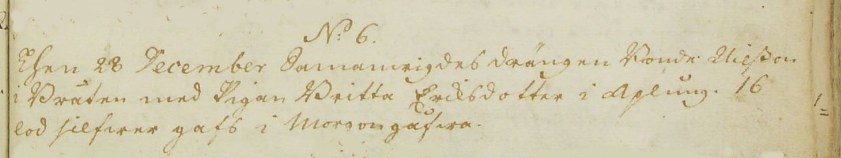 No. 6.
Then 28 December Samanwigdes drängen Bonde Nilsson
i Bråten med Pigan Britta Ericsdotter i Aplung. 16
lod silfwer gafs i Morgongåfwa.